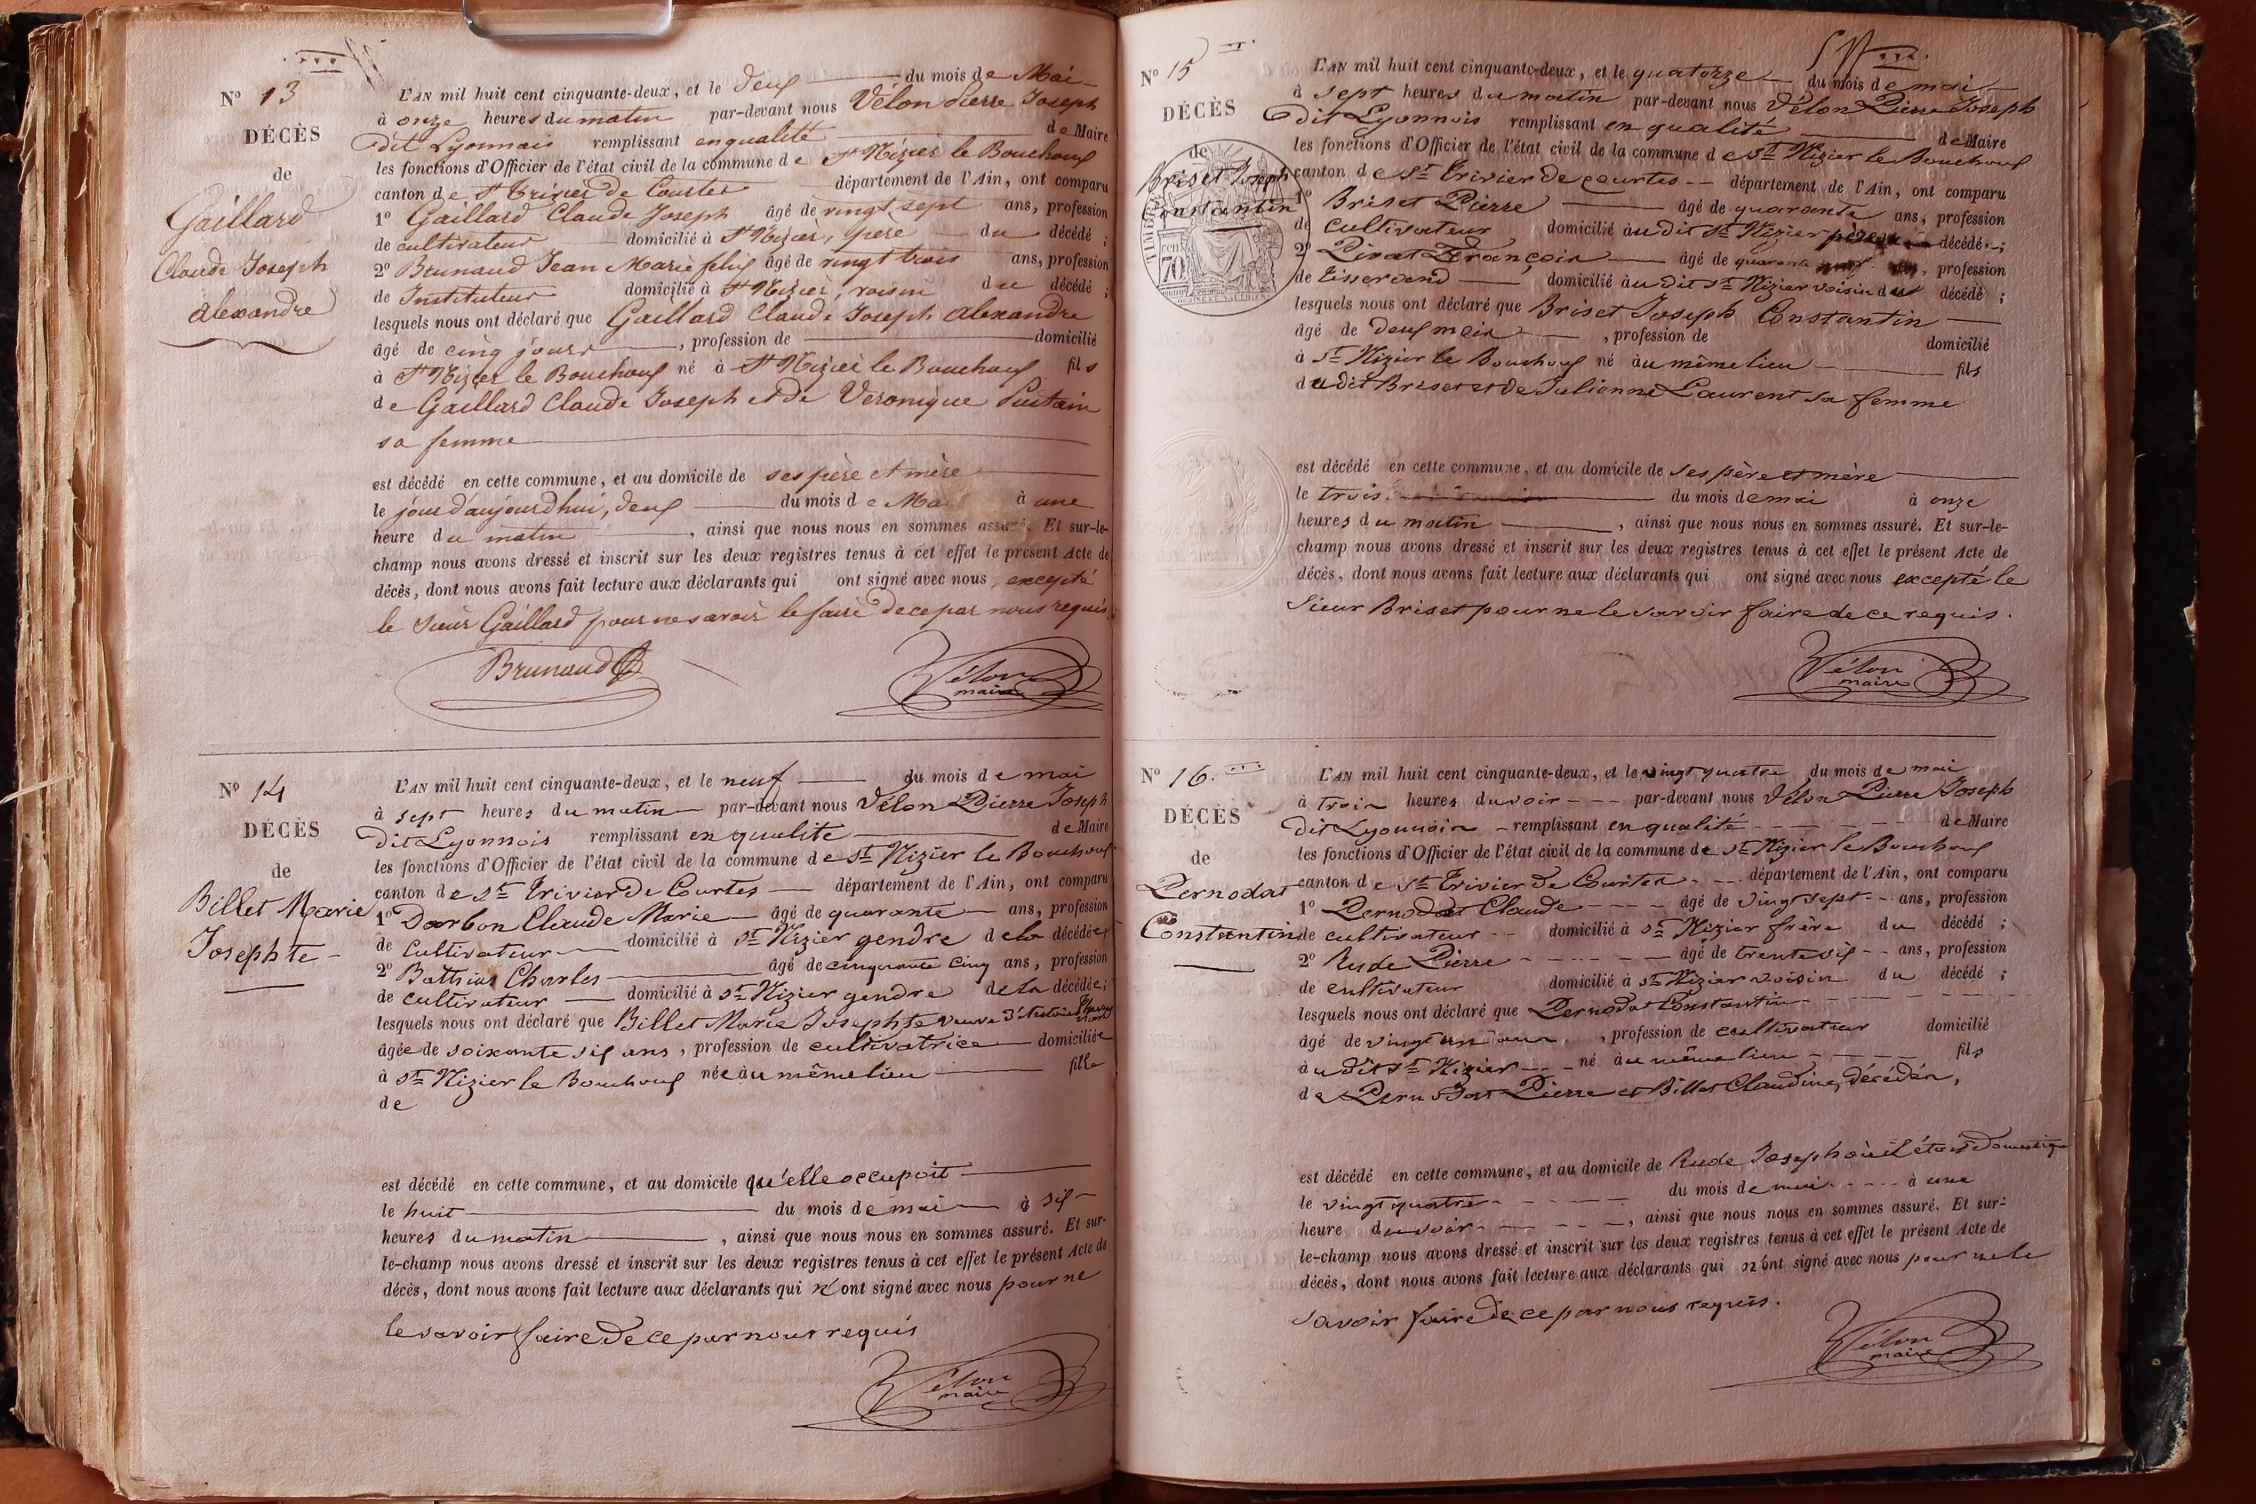 Nº 13
DÉCÈS
de
Gaillard
Claude Joseph
alexandre
L'AN mil huit cent cinquante-deux, et le deux du mois de Mai
à onze heures du matin par-devant nous Vélon Pierre Joseph
dit Lyonnais remplissant en qualité de Maire
les fonctions d'Officier de l'état civil de la commune de St Nizier le Bouchoux
canton de St Trivier de Courtes département de l'Ain, ont comparu
1º Gaillard Claude Joseph âgé de vingt sept ans, profession
de cultivateur domicilié à St Nizier, père du décédé ;
2º Brunaud Jean Marie fils âgé de vingt trois ans, profession
de Instituteur domicilié à St Nizier, voisin du décédé ;
lesquels nous ont déclaré que Gaillard Claude Joseph alexandre
âgé de cinq jours, profession de domicilié
à St Nizier le Bouchoux né à St Nizier le Bouchoux fils
de Gaillard Claude Joseph et de Véronique
sa femme
est décédé en cette commune, et au domicile de ses père et mère
le jour d'aujourd'hui, deux du mois de Mai à une
heure du matin, ainsi que nous nous en sommes assuré. Et sur-le-
champ nous avons dressé et inscrit sur les deux registres tenus à cet effet le présent Acte de
décès, dont nous avons fait lecture aux déclarants qui ont signé avec nous, excepté
le sieur Gaillard pour ne savoir le faire de ce par nous requis
Brunaud
Vélon
maire
Nº 14
DÉCÈS
de
Billet Marie
Josephte
L'AN mil huit cent cinquante-deux, et le neuf du mois de mai
à sept heures du matin par-devant nous Vélon Pierre Joseph
dit Lyonnois remplissant en qualité de Maire
les fonctions d'Officier de l'état civil de la commune de St Nizier le Bouchoux
canton de St Trivier de Courtes département de l'Ain, ont comparu
1º Darbon Claude Marie âgé de quarante ans, profession
de cultivateur domicilié à St Nizier gendre de la décédée ;
2º Charles âgé de cinquante cinq ans, profession
de cultivateur domicilié à St Nizier gendre de la décédée ;
lesquels nous ont déclaré que Billet Marie Josephte veuve
âgée de soixante six ans, profession de cultivatrice domiciliée
à St Nizier le Bouchoux née àu même lieu fille
de
est décédé en cette commune, et au domicile qu'elle occupoit
le huit du mois de mai à six
heures du matin, ainsi que nous nous en sommes assuré. Et sur-
le-champ nous avons dressé et inscrit sur les deux registres tenus à cet effet le présent Acte de
décès, dont nous avons fait lecture aux déclarants qui n'ont signé avec nous pour ne
le savoir faire de ce par nous requis
Vélon
maire
Nº 15
DÉCÈS
de
Briset Joseph
Constantin
L'AN mil huit cent cinquante-deux, et le quatorze du mois de mai
à sept heures du matin par-devant nous Vélon Pierre Joseph
dit Lyonnois remplissant en qualité de Maire
les fonctions d'Officier de l'état civil de la commune de St Nizier le Bouchoux
canton de St Trivier de courtes département de l'Ain, ont comparu
1º Briset Pierre âgé de quarante ans, profession
de cultivateur domicilié àu dit St Nizier père du décédé ;
2º Pirat François âgé de quarante neuf, profession
de tisserand domicilié àu dit St Nizier voisin du décédé ;
lesquels nous ont déclaré que Briset Joseph Constantin
âgé de deux mois, profession de domicilié
à St Nizier le Bouchoux né àu même lieu fils
du dit Briset et de Julienne Laurent sa femme
est décédé en cette commune, et au domicile de ses père et mère
le trois du mois de mai à onze
heures du matin, ainsi que nous nous en sommes assuré. Et sur-le-
champ nous avons dressé et inscrit sur les deux registres tenus à cet effet le présent Acte de
décès, dont nous avons fait lecture aux déclarants qui ont signé avec nous excepté le
sieur Briset pour ne le savoir faire de ce requis.
Vélon
maire
Nº 16
DÉCÈS
de
Pernodat
Constantin
L'AN mil huit cent cinquante-deux, et le vingt quatre du mois de mai
à trois heures du soir par-devant nous Vélon Pierre Joseph
dit Lyonnois remplissant en qualité de Maire
les fonctions d'Officier de l'état civil de la commune de St Nizier le Bouchoux
canton de St Trivier de Courtes département de l'Ain, ont comparu
1º Pernodat Claude âgé de vingt sept ans, profession
de cultivateur domicilié à St Nizier frère du décédé ;
2º Rude Pierre âgé de trente six ans, profession
de cultivateur domicilié à St Nizier voisin du décédé ;
lesquels nous ont déclaré que Pernodat Constantin
âgé de vingt un ans, profession de cultivateur domicilié
àu dit St Nizier né àu même lieu fils
de Pernodat Pierre et Billet Claudine, décédés,
est décédé en cette commune, et au domicile de Rude Joseph où il étoit domestique
le vingt quatre du mois de mai à une
heure du soir, ainsi que nous nous en sommes assuré. Et sur-
le-champ nous avons dressé et inscrit sur les deux registres tenus à cet effet le présent Acte de
décès, dont nous avons fait lecture aux déclarants qui n'ont signé avec nous pour ne le
savoir faire de ce par nous requis.
Vélon
maire